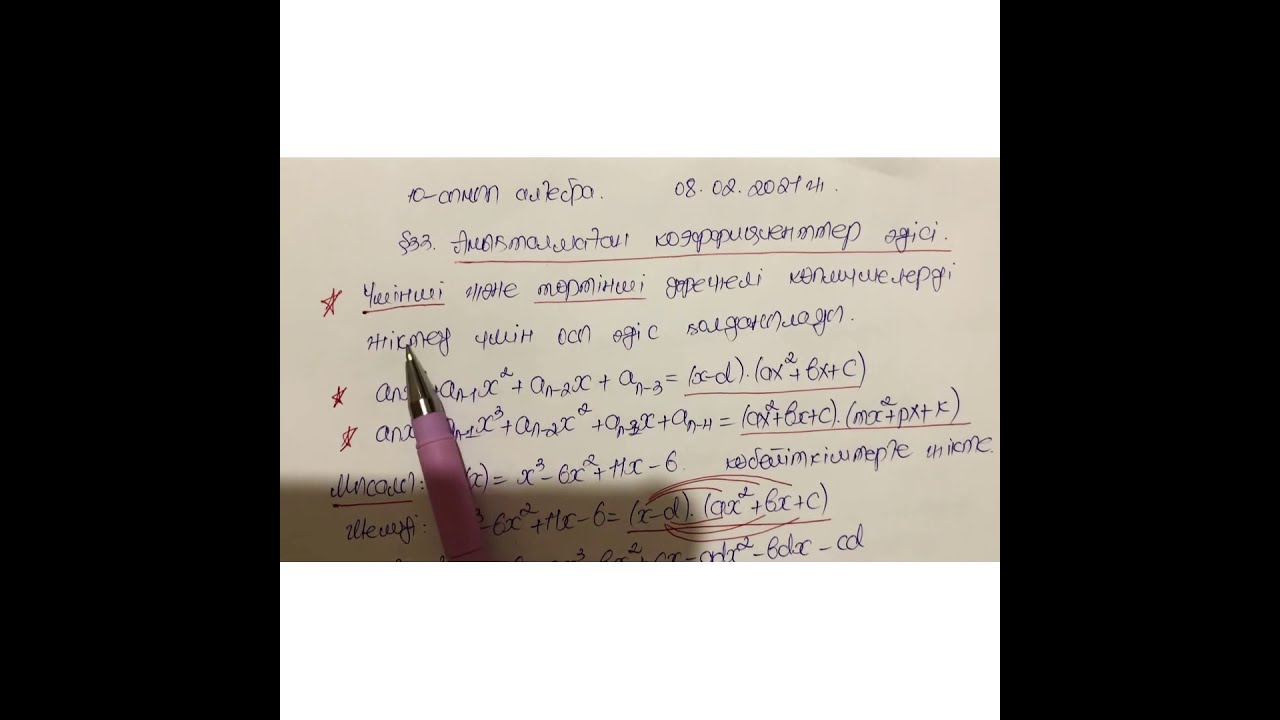 10-сынып алгебра. 08.02.2021 ж.
§33. Анықталмаған коэффициенттер әдісі.
Үшінші және төртінші дәрежелі көпмүшелерді
жіктеу үшін осы әдіс қолданылады.
aₙx + aₙ₋₁x² + aₙ₋₂x + aₙ₋₃ = (x-d)·(ax²+bx+c)
aₙx aₙ₋₁x³ + aₙ₋₂x² + aₙ₋₃x + aₙ₋₄ = (ax²+bx+c)·(mx²+px+k)
Мысалы: (x) = x³ - 6x² + 11x - 6. көбейткіштерге жікте.
Шешуі: ³ - 6x² + 11x - 6 = (x-d)·(ax²+bx+c)
x³ bx² + cx - adx² - bdx - cd